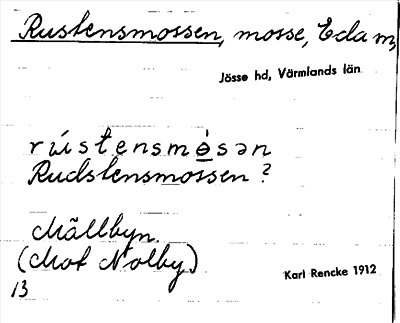 Rustensmossen, mosse, Eda sn,
Jösse hd, Värmlands län
rústensmòsən
Rudstensmossen?
Mällbyn.
(Mot Nolby)
Karl Rencke 1912
13